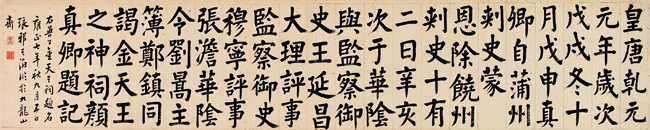 皇唐乾元
元年歲次
戊戌冬十
月戊申真
卿自蒲州
刺史蒙
恩除饒州
刺史十有
二日辛亥
次于華陰
與監察御
史王延昌
大理評事
監察御史
穆寧評事
張澹華陰
令劉暠主
簿鄭鎮同
謁金天王
之神祠顏
真卿題記
右魯公金天王祠題名
雍正七年秋九月日
琅邪王澍臨於九龍山
齋